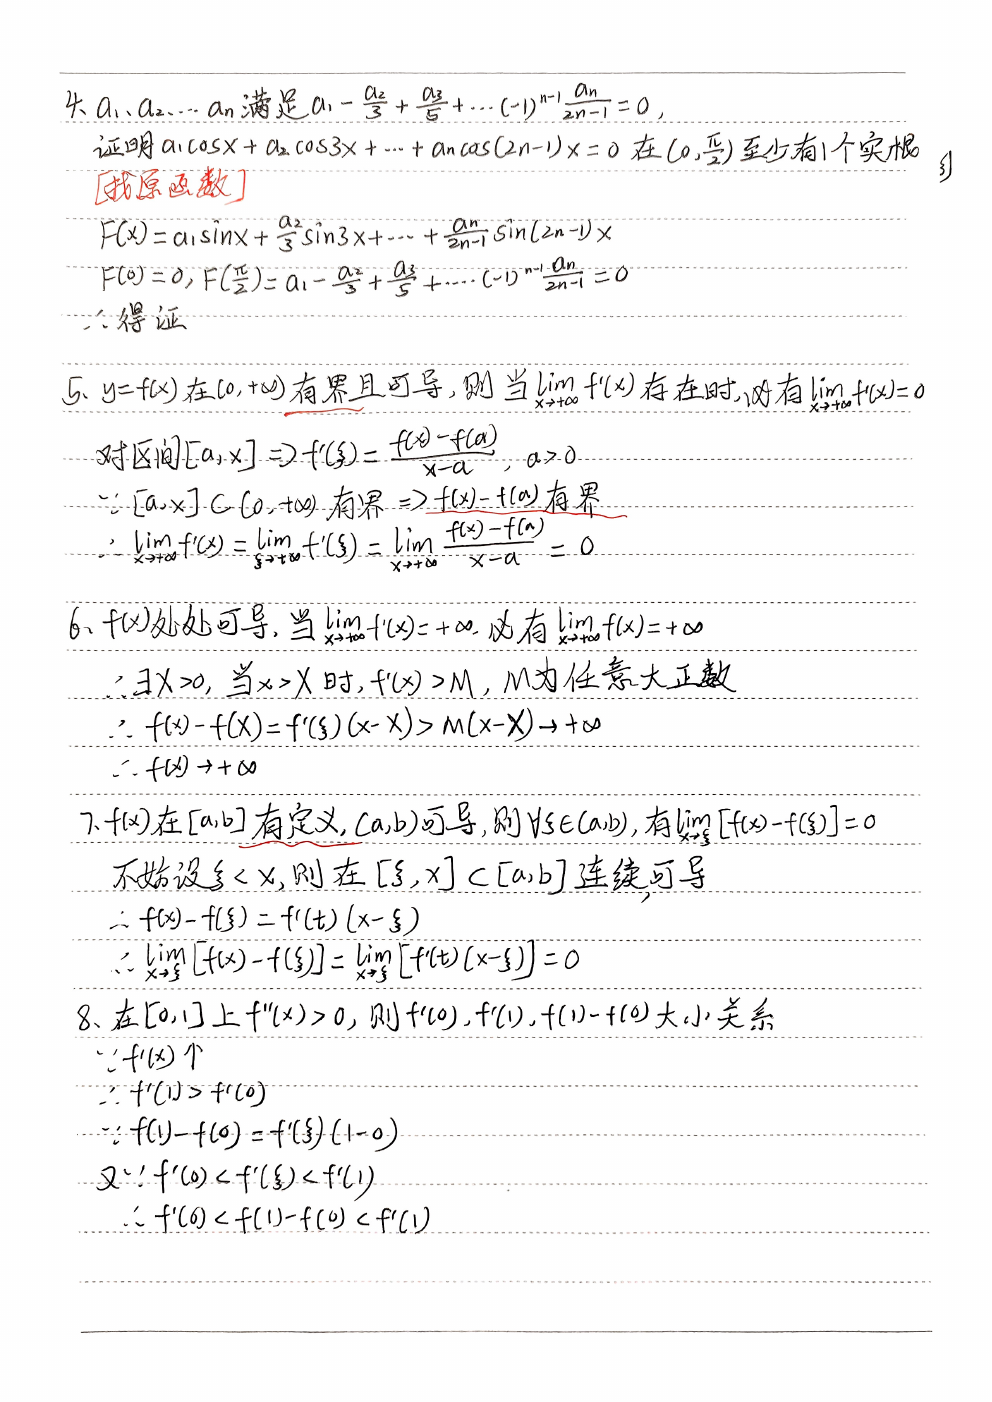 4、a₁、a₂、… aₙ 满足 a₁ - a₂/3 + a₃/5 + … (-1)ⁿ⁻¹ aₙ/(2n-1) = 0,
证明 a₁cosx + a₂cos3x + … + aₙcos(2n-1)x = 0 在 (0, π/2) 至少有1个实根
[找原函数]
F(x) = a₁sinx + a₂/3 sin3x + … + aₙ/(2n-1) sin(2n-1)x
F(0) = 0, F(π/2) = a₁ - a₂/3 + a₃/5 + …. (-1)ⁿ⁻¹ aₙ/(2n-1) = 0
∴ 得证
5、y=f(x) 在(0, +∞) 有界且可导, 则当 lim_{x→+∞} f'(x) 存在时, 必有 lim_{x→+∞} f'(x) = 0
对区间[a,x] => f'(ξ) = (f(x)-f(a))/(x-a), a>0
∵ [a,x] ⊂ (0,+∞) 有界 => f(x)-f(a) 有界
∴ lim_{x→+∞} f'(x) = lim_{ξ→+∞} f'(ξ) = lim_{x→+∞} (f(x)-f(a))/(x-a) = 0
6、f(x)处处可导, 当 lim_{x→+∞} f'(x) = +∞. 必有 lim_{x→+∞} f(x) = +∞
∴ ∃X>0, 当x>X时, f'(x)>M, M为任意大正数
∴ f(x)-f(X) = f'(ξ)(x-X) > M(x-X) → +∞
∴ f(x) → +∞
7、f(x)在[a,b]有定义, (a,b)可导, 则∀ξ∈(a,b), 有 lim_{x→ξ} [f(x)-f(ξ)] = 0
不妨设ξ<x, 则在[ξ,x]⊂[a,b]连续,可导
∴ f(x)-f(ξ) = f'(t)(x-ξ)
∴ lim_{x→ξ} [f(x)-f(ξ)] = lim_{x→ξ} [f'(t)(x-ξ)] = 0
8、在[0,1]上 f''(x)>0, 则f'(0), f'(1), f(1)-f(0)大小关系
∵ f'(x)↑
∴ f'(1) > f'(0)
∵ f(1)-f(0) = f'(ξ)(1-0)
又∵ f'(0) < f'(ξ) < f'(1)
∴ f'(0) < f(1)-f(0) < f'(1)